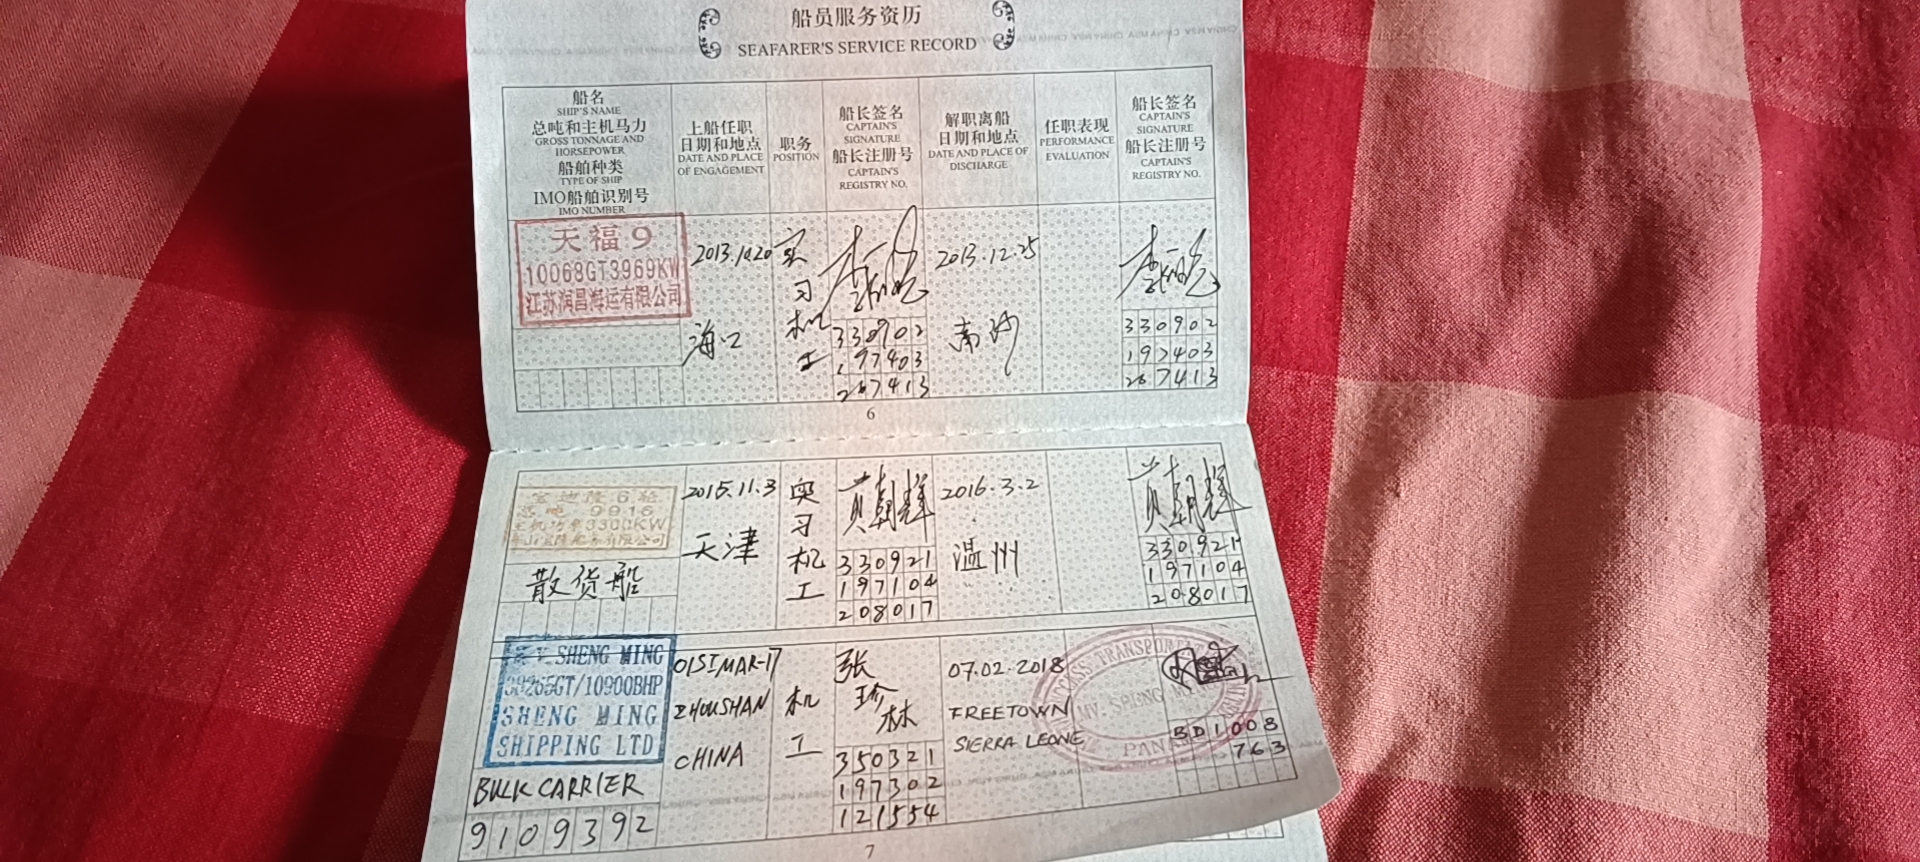 船员服务资历
SEAFARER'S SERVICE RECORD
船名
SHIP'S NAME
总吨和主机马力
GROSS TONNAGE AND
HORSEPOWER
船舶种类
TYPE OF SHIP
IMO船舶识别号
IMO NUMBER
上船任职
日期和地点
DATE AND PLACE
OF ENGAGEMENT
职务
POSITION
船长签名
CAPTAIN'S
SIGNATURE
船长注册号
CAPTAIN'S
REGISTRY NO.
解职离船
日期和地点
DATE AND PLACE OF
DISCHARGE
任职表现
PERFORMANCE
EVALUATION
船长签名
CAPTAIN'S
SIGNATURE
船长注册号
CAPTAIN'S
REGISTRY NO.
天福9
10068GT3969KW
江苏润昌海运有限公司
2013.10.20
海口
实
习
机
工
330902
197403
267413
2013.12.25
南沙
330902
197403
267413
6
9916
3300KW
散货船
2015.11.3
天津
实
习
机
工
黄朝辉
330921
197104
208017
2016.3.2
温州
黄朝辉
330921
197104
208017
M.V. SHENG MING
GT/10900BHP
SHENG MING
SHIPPING LTD
BULK CARRIER
9109392
01ST MAR-17
ZHOUSHAN
CHINA
机
工
张
珍
林
350321
197302
121554
07.02.2018
FREETOWN
SIERRA LEONE
TRANSPORT
PANAMA
BD1008
763
7